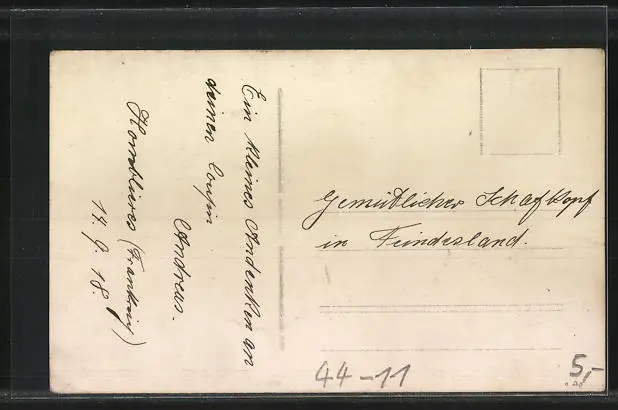 Ein kleines Andenken an
deinen Cousin
Andreas.
Homblières (Frankreich)
14. 9. 18.
Gemütlicher Schafkopf
in Feindesland.
44-11
5,-